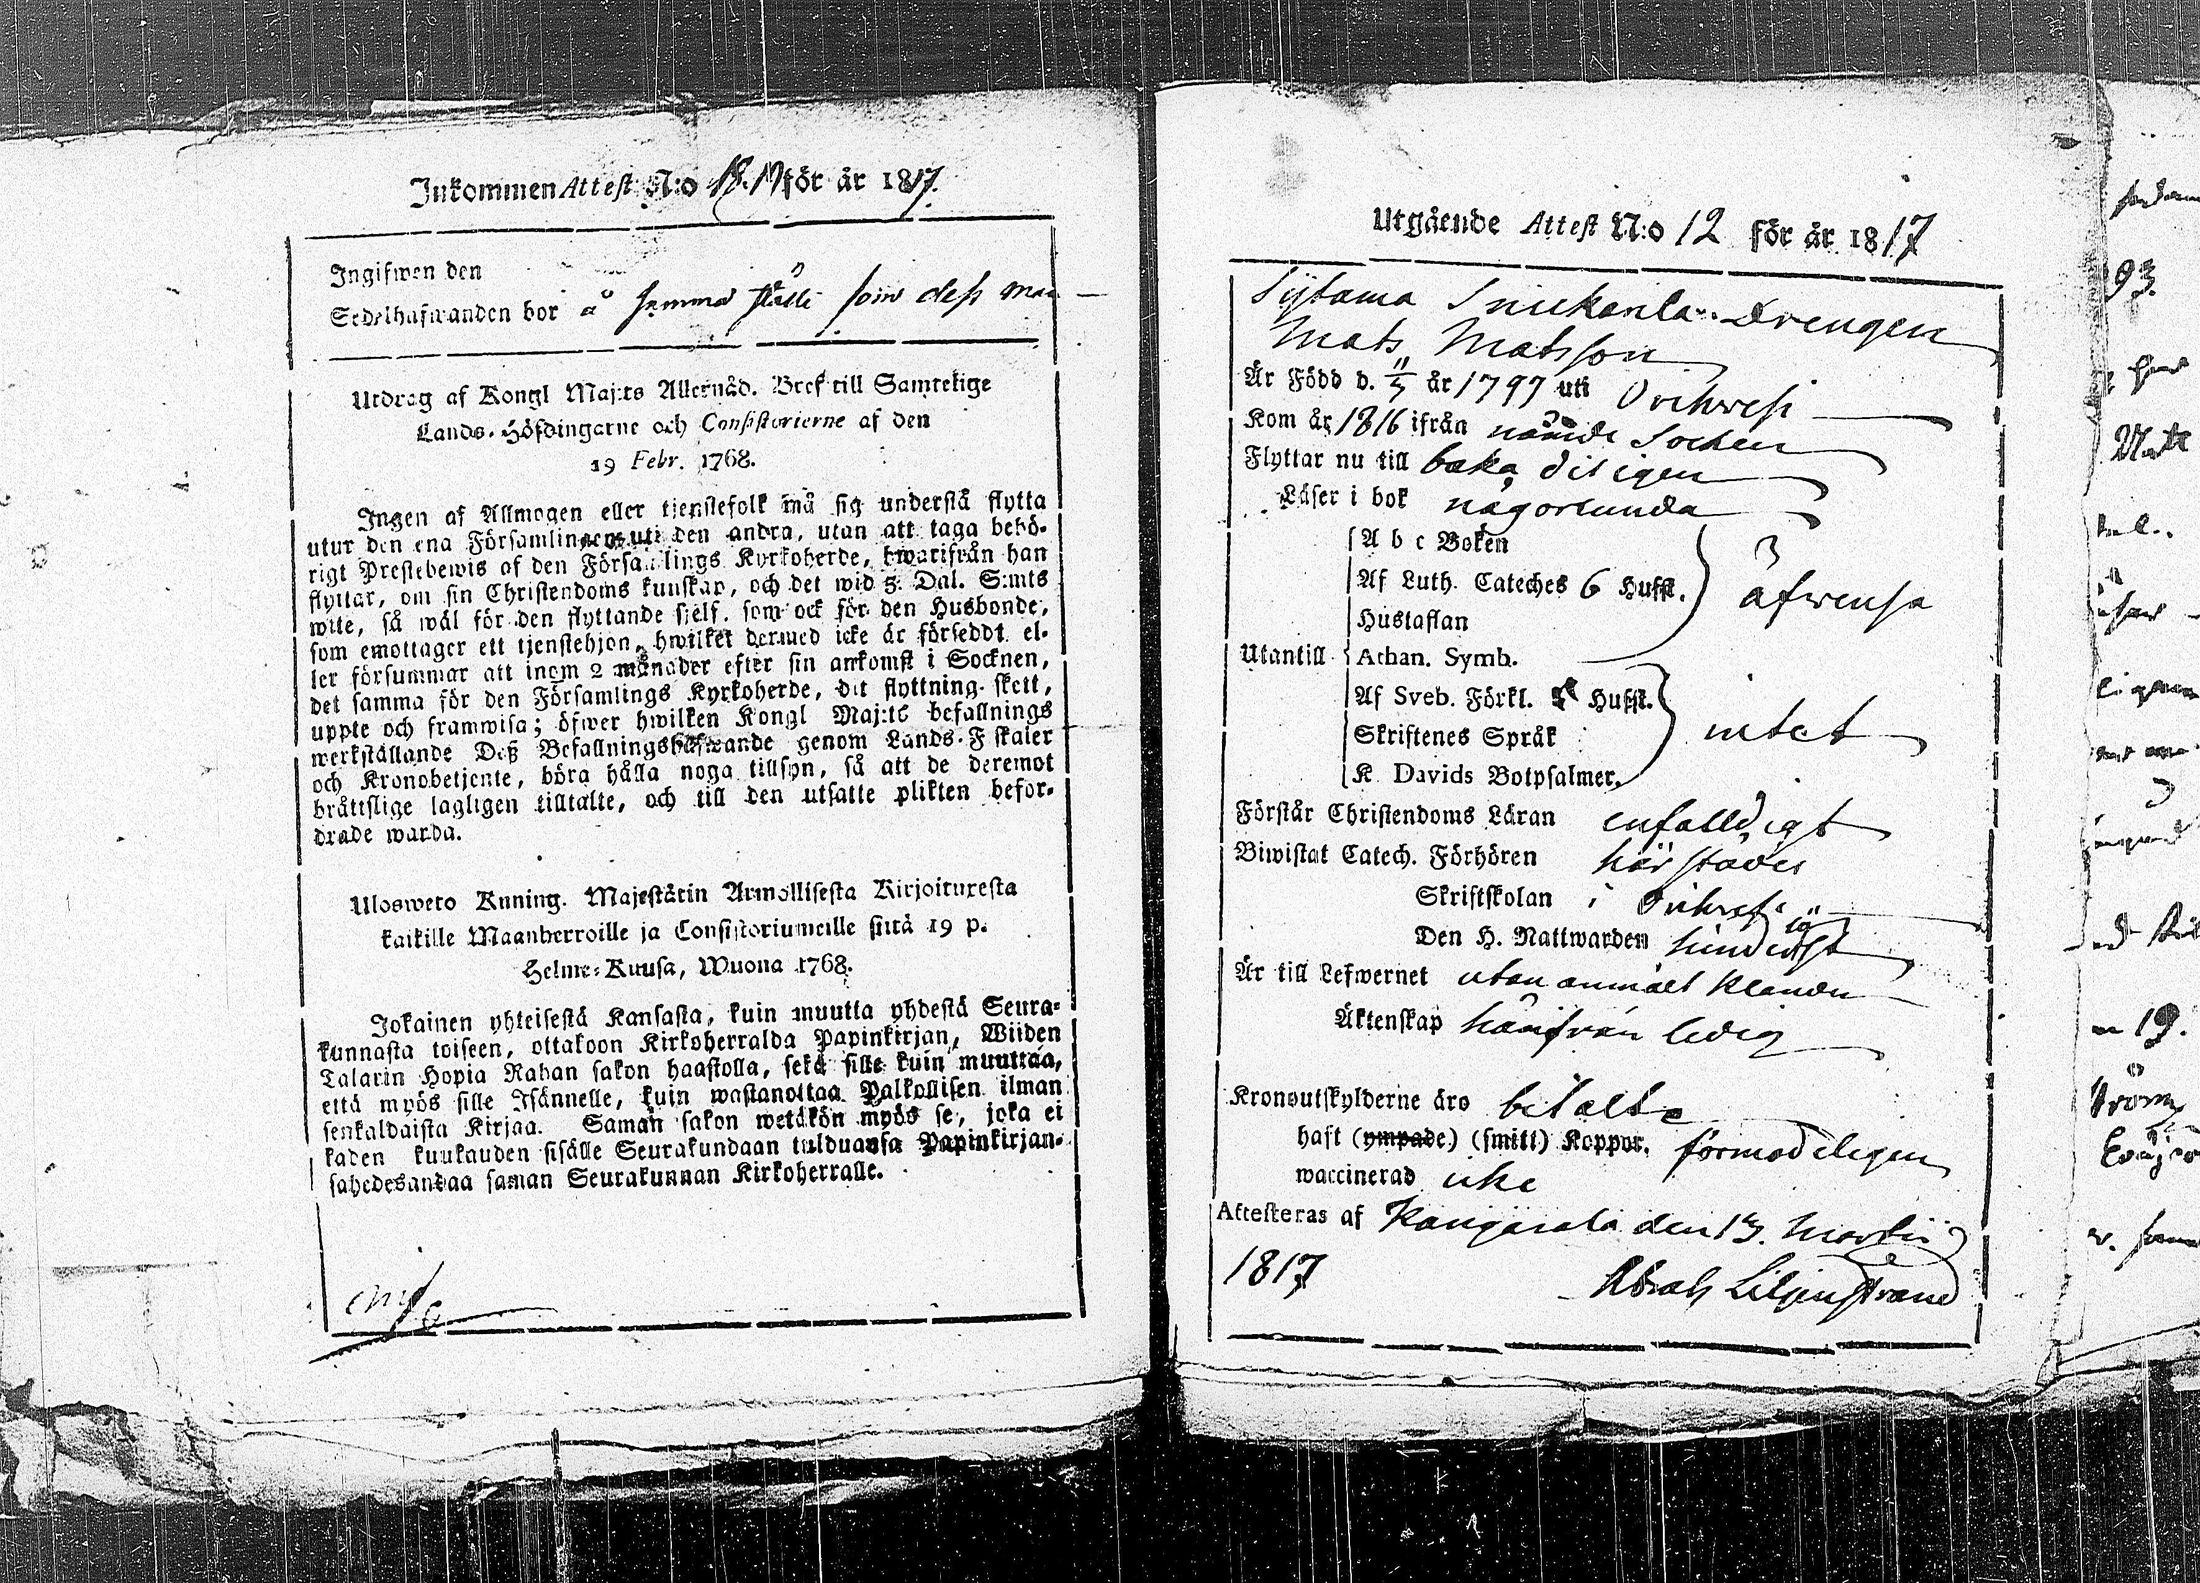 Inkommen Attest N:o 18. 17 för år 1817.
Ingifwen den
Sedelhafwanden bor å samma ställe som dess man
Utdrag af Kongl Maj:ts Allernåd. Bref till Samtelige
Lands-Höfdingarne och Consistorierne af den
19 Febr. 1768.
Ingen af Allmogen eller tjenstefolk må sig understå flytta
utur den ena Församlingen uti den andra, utan att taga behö-
rigt Prestebewis af den Församlings Kyrkoherde, hwarifrån han
flyttar, om sin Christendoms kunskap, och det wid 5. Dal. S:mts
wite, så wäl för den flyttande sjelf, som ock för den Husbonde,
som emottager ett tjenstehjon, hwilket dermed icke är försedt, el-
ler försummar att inom 2 månader efter sin ankomst i Socknen,
det samma för den Församlings Kyrkoherde, dit flyttning skett,
uppte och framwisa; öfwer hwilken Kongl Maj:ts befallnings
werkställande Deß Befallningshafwande genom Lands-Fiskaler
och Kronobetjente, böra hålla noga tillsyn, så att de deremot
bråttslige lagligen tilltalte, och till den utsatte plikten befor-
drade warda.
Ulosweto Kuning. Majestätin Armollisesta Kirjoituxesta
kaikille Maanherroille ja Consistoriumeille siitä 19 p.
Helme-Kuusa, Wuona 1768.
Jokainen yhteisestä Kansasta, kuin muutta yhdestä Seura-
kunnasta toiseen, ottakoon Kirkoherralda Papinkirjan, Wiiden
Talarin Hopia Rahan sakon haastolla, sekä sille kuin muuttaa,
että myös sille Isännelle, kuin wastanottaa Palkollisen ilman
senkaldaista Kirjaa. Saman sakon wetäkön myös se, joka ei
kaden kuukauden sisälle Seurakundaan tulduansa Papinkirjan-
sahedesandaa saman Seurakunnan Kirkoherralle.
Utgående Attest N:o 12 för år 1817
Drengen
Mats Matsson
Är Född d. 11/5 år 1797 uti Orihvesi
Kom år 1816 ifrån nämde Socken
Flyttar nu till baka dit igen
Läser i bok någorlunda
A b c Boken
Af Luth. Cateches 6 Hufst. äfwensa
Hustaflan
Utantill Athan. Symb.
Af Sveb. Förkl. Hufst.
Skriftenes Språk intet
K Davids Botpsalmer.
Förstår Christendoms Läran enfalldigt
Biwistat Catech. Förhören härstädes
Skriftskolan i Orihvesi
Den H. Nattwarden
Är till Lefwernet utan anmält klander
Äktenskap härifrån ledig
Kronoutskylderne äro betalte
haft (ympade) (smitt) Koppor. förmodeligen
waccinerad icke
Attesteras af Kangasala den 13. Martii
1817 Abrah Liljenstrand